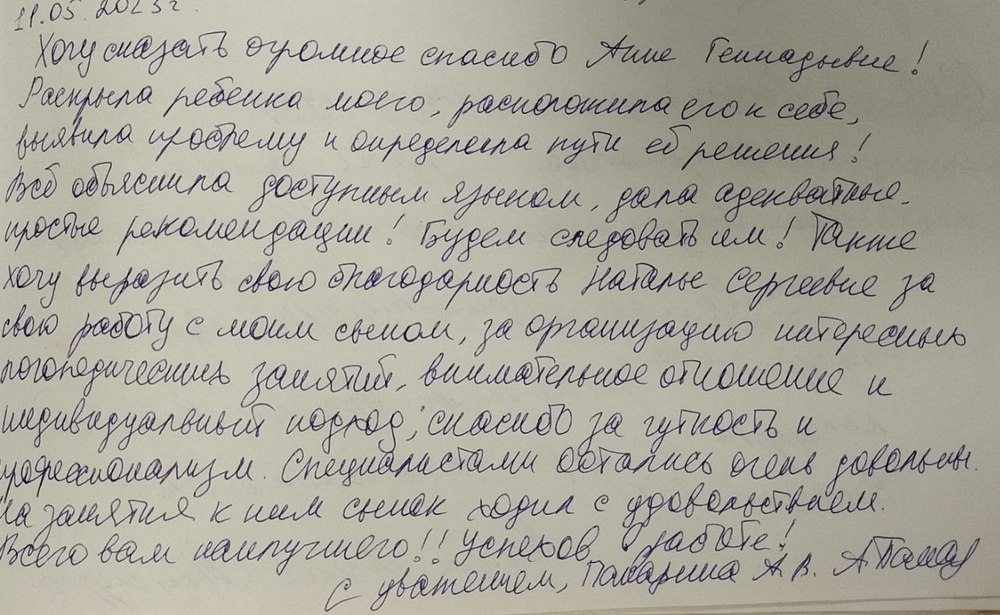 11.05.2023г.
Хочу сказать огромное спасибо Анне Геннадьевне!
Раскрыла ребенка моего, расположила его к себе,
выявила проблему и определила пути её решения!
Всё объяснила доступным языком, дала адекватные,
простые рекомендации! Будем следовать им! Также
хочу выразить свою благодарность Наталье Сергеевне за
свою работу с моим сыном, за организацию интересных
логопедических занятий, внимательное отношение и
индивидуальный подход; спасибо за чуткость и
профессионализм. Специалистами остались очень довольны.
На занятия к ним сынок ходил с удовольствием.
Всего вам наилучшего!! Успехов в работе!
С уважением, А.В.